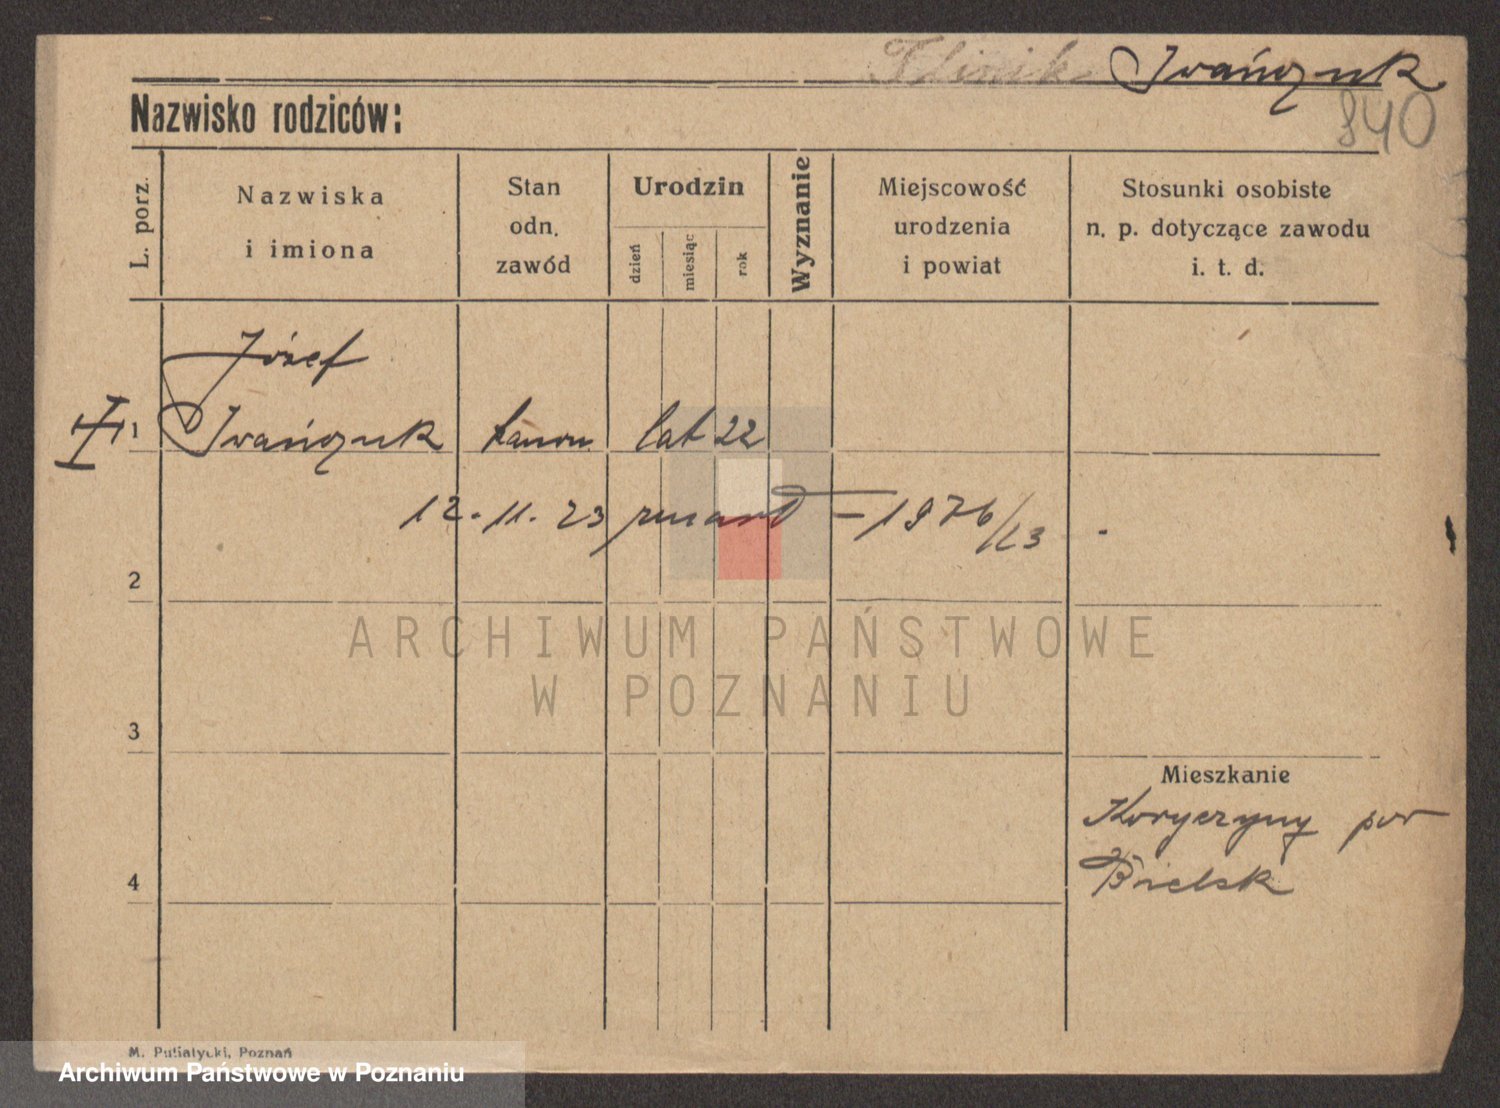 Iwańczuk
840
Nazwisko rodziców:
L. porz.
Nazwiska
i imiona
Stan
odn.
zawód
Urodzin
dzień
miesiąc
rok
Wyznanie
Miejscowość
urodzenia
i powiat
Stosunki osobiste
n. p. dotyczące zawodu
i. t. d.
Józef
1 Iwańczuk kanon. lat 22
12.11.23 zmarł – 1976/23
2
ARCHIWUM PAŃSTWOWE
W POZNANIU
3
Mieszkanie
Koryczyny pow
Bielsk
4
M. Putiatycki, Poznań
Archiwum Państwowe w Poznaniu